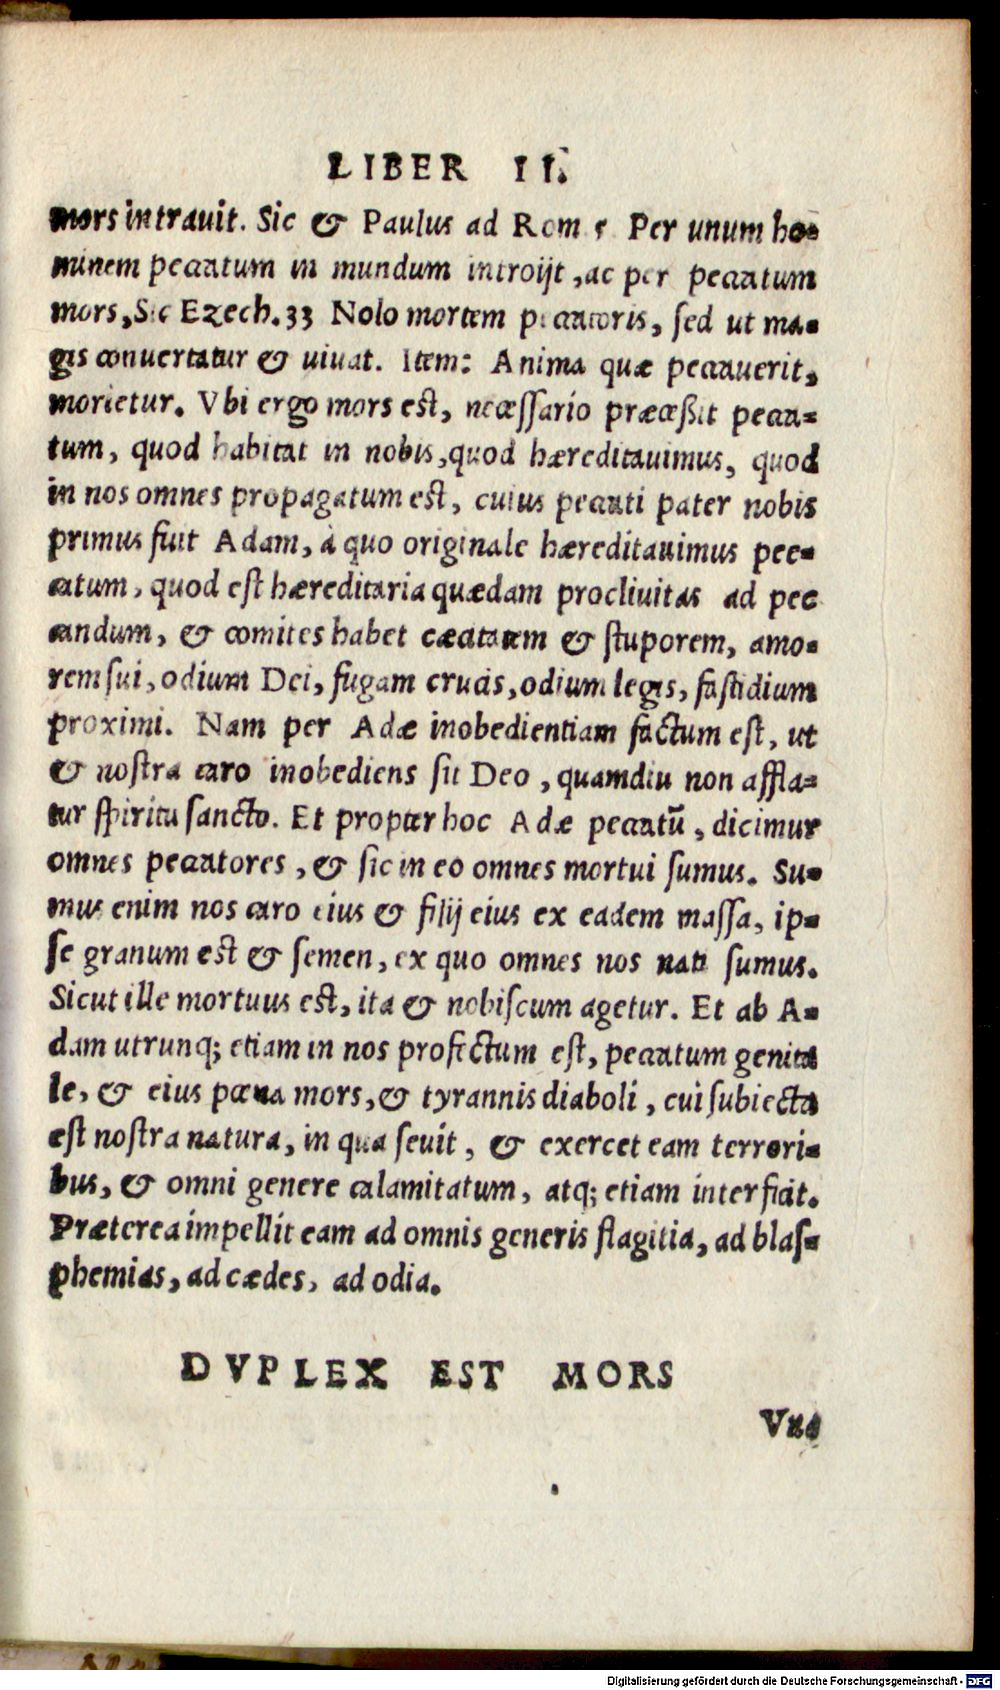 LIBER II.
mors intrauit. Sic & Paulus ad Rom 5 Per unum ho-
minem peccatum in mundum introijt, ac per peccatum
mors, Sic Ezech. 33 Nolo mortem peccatoris, sed ut ma-
gis conuertatur & uiuat. Item: Anima quæ peccauerit,
morietur. Vbi ergo mors est, necessario præceßit pecca-
tum, quod habitat in nobis, quod hæreditauimus, quod
in nos omnes propagatum est, cuius peccati pater nobis
primus fuit Adam, à quo originale hæreditauimus pec-
catum, quod est hæreditaria quædam procliuitas ad pec
candum, & comites habet cæcitatem & stuporem, amo-
rem sui, odium Dei, fugam crucis, odium legis, fastidium
proximi. Nam per Adæ inobedientiam factum est, ut
& nostra caro inobediens sit Deo, quamdiu non affla-
tur spiritu sancto. Et propter hoc Adæ peccatũ, dicimur
omnes peccatores, & sic in eo omnes mortui sumus. Su-
mus enim nos caro eius & filij eius ex eadem massa, ip-
se granum est & semen, ex quo omnes nos nati sumus.
Sicut ille mortuus est, ita & nobiscum agetur. Et ab A-
dam utrunq; etiam in nos profectum est, peccatum genita
le, & eius pœna mors, & tyrannis diaboli, cui subiecta
est nostra natura, in qua seuit, & exercet eam terrori-
bus, & omni genere calamitatum, atq; etiam interficit.
Præterea impellit eam ad omnis generis flagitia, ad blas-
phemias, ad cædes, ad odia.
DVPLEX EST MORS
Vna
Digitalisierung gefördert durch die Deutsche Forschungsgemeinschaft - DFG